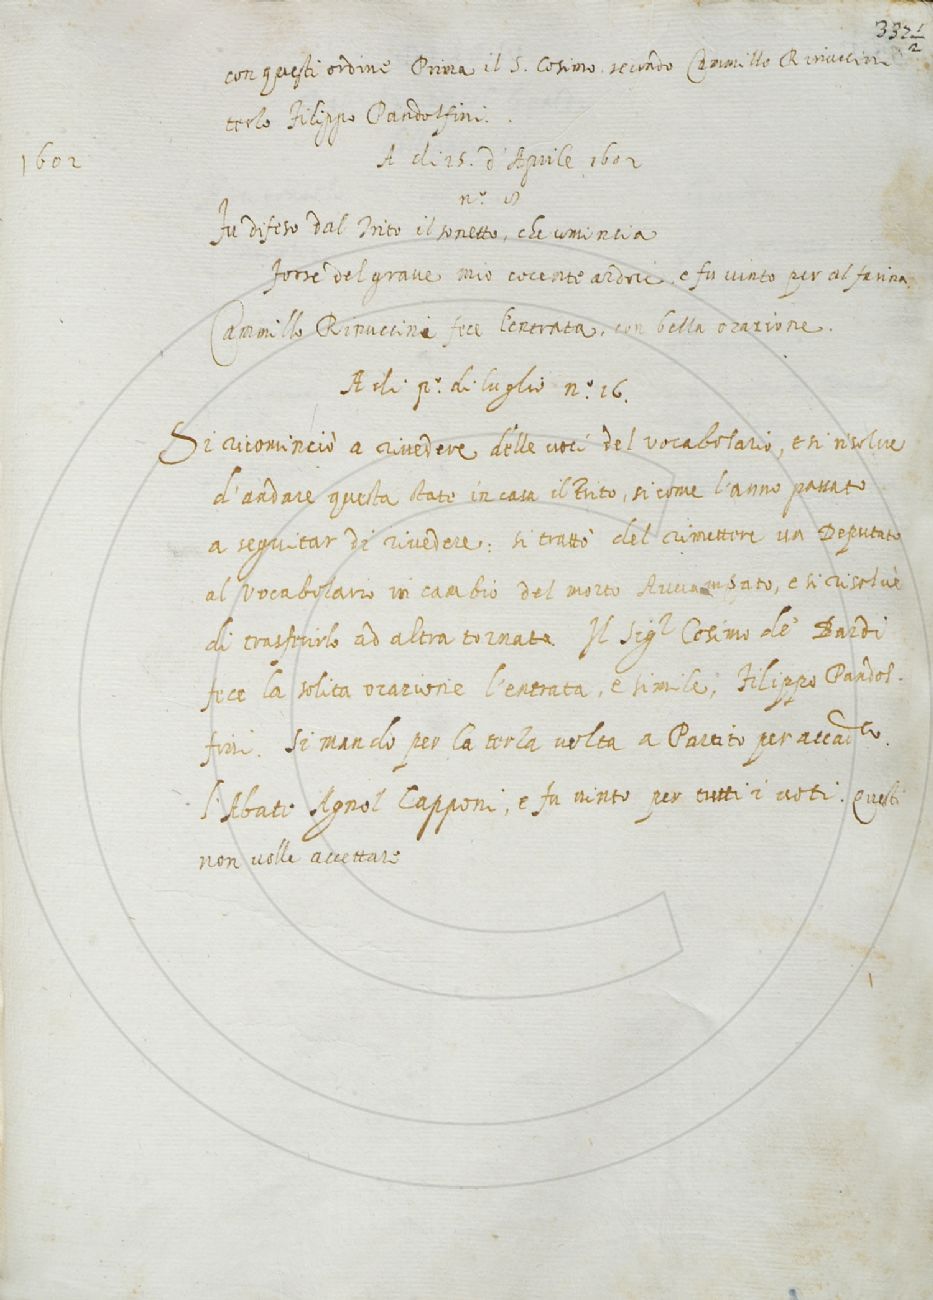 337 1/2
con questi ordine Prima il S. Cosimo. secondo Cammillo Rinuccini
terzo Filippo Pandolfini.
1602
A di 25. d'Aprile 1602
n.º 18
Fu difeso dal Trito il sonetto, che comincia
Forse del graue mio cocente ardore. e fu uinto per
Cammillo Rinuccini fece l'entrata, con bella orazione.
A di p.º di luglio n.º 16.
Si ricominciò a riuedere delle uoci del vocabolario, e si risolue
d'andare questa state in casa il Trito, si come l'anno passato
a seguitar di riuedere: si trattò del rimettere un Deputato
al vocabolario in cambio del morto, e si risoluè
di trasferirlo ad altra tornata. Il Sig.r Cosimo de' Bardi
fece la solita orazione l'entrata, e simile, Filippo Pandol-
fini. Si mandò per la terza uolta a Partito per accad.co
l'Abate Agnol Capponi, e fu uinto per tutti i uoti. Questi
non uolle accettare